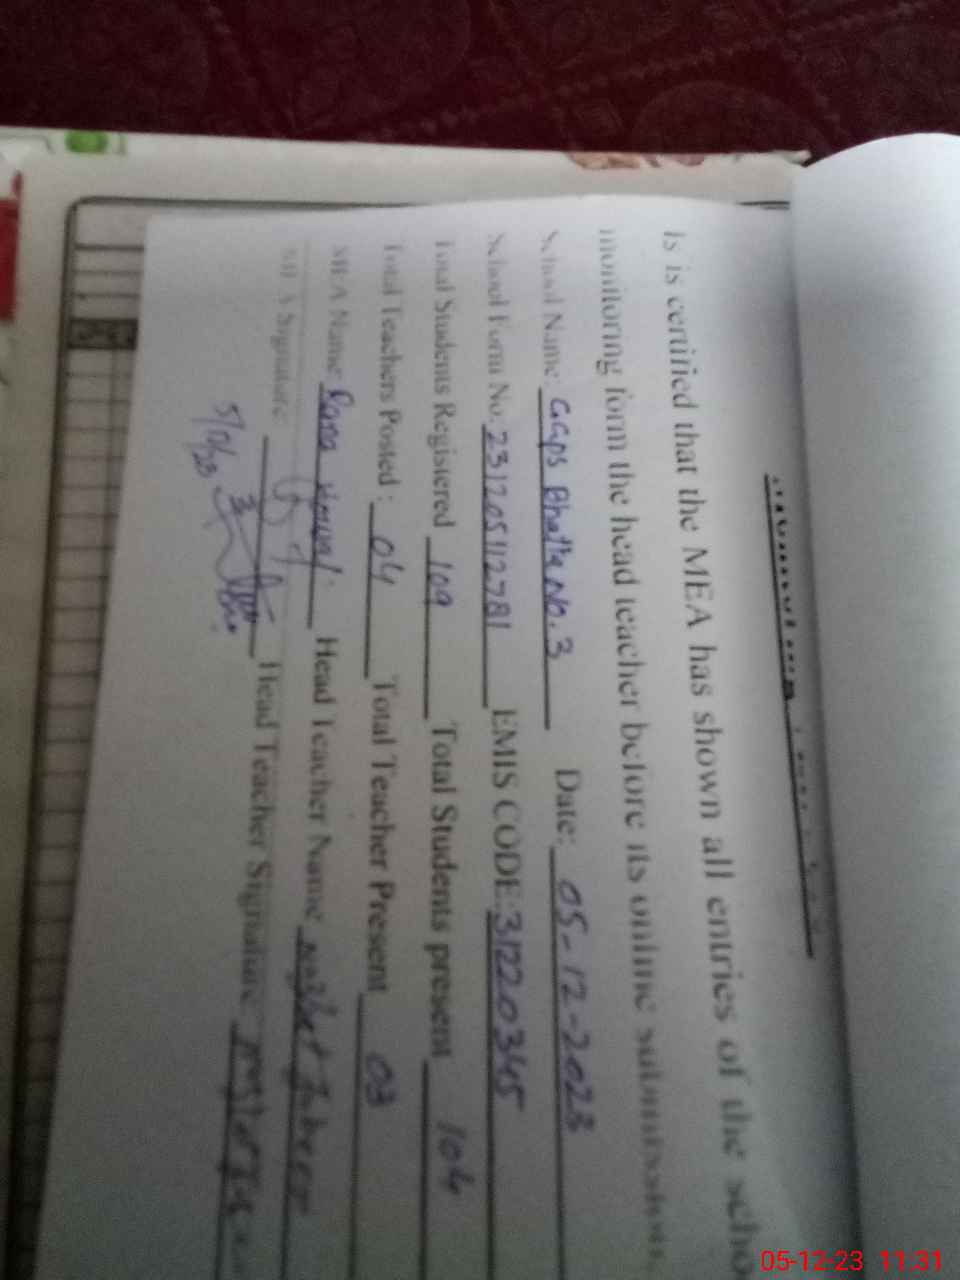 is is certified that the MEA has shown all entries of the scho
monitoring form the head teacher before its online submission
School Name: GGPS Bhatta No. 3 Date: 05-12-2023
School Form No. 231205112781 EMIS CODE: 31220345
Total Students Registered 109 Total Students present 104
Total Teachers Posted: 04 Total Teacher Present 03
MEA Name Rana Head Teacher Name
MEA Signature: Head Teacher Signature
05-12-23 11:31